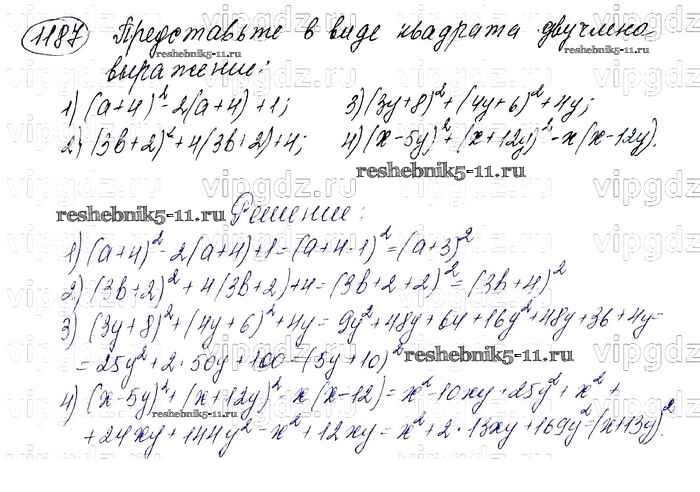 1187 Представьте в виде квадрата двучлена
reshebnik5-11.ru
выражение:
1) (a+4)²-2(a+4)+1; 3) (3y+8)²+(4y+6)²+4y;
2) (3b+2)²+4(3b+2)+4; 4) (x-5y)²+(x+12y)²-x(x-12y).
reshebnik5-11.ru
reshebnik5-11.ru Решение:
1) (a+4)²-2(a+4)+1=(a+4-1)²=(a+3)²
2) (3b+2)²+4(3b+2)+4=(3b+2+2)²=(3b+4)²
3) (3y+8)²+(4y+6)²+4y=9y²+48y+64+16y²+48y+36+4y=
=25y²+2·50y+100=(5y+10)² reshebnik5-11.ru
4) (x-5y)²+(x+12y)²-x(x-12)=x²-10xy+25y²+x²+
reshebnik5-11.ru
+24xy+144y²-x²+12xy=x²+2·13xy+169y²=(x+13y)².
reshebnik5-11.ru
vipgdz.ru vipgdz.ru vipgdz.ru vipgdz.ru